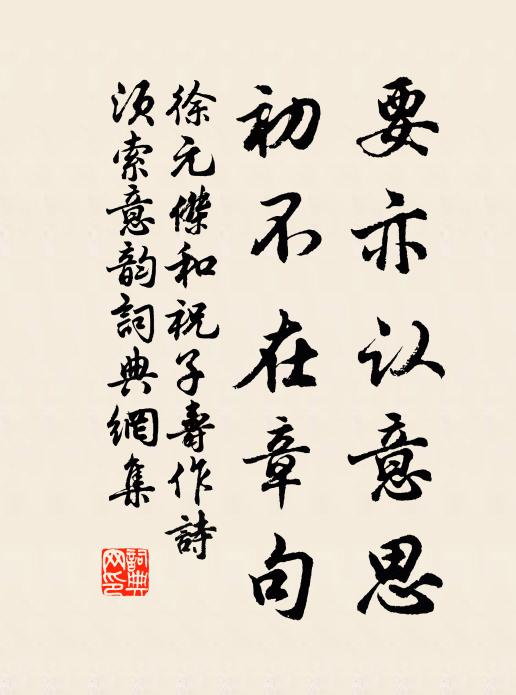 要亦认意思
初不在章句
徐元傑和祝子壽作詩
须索意韵詞典網集
詞典网印